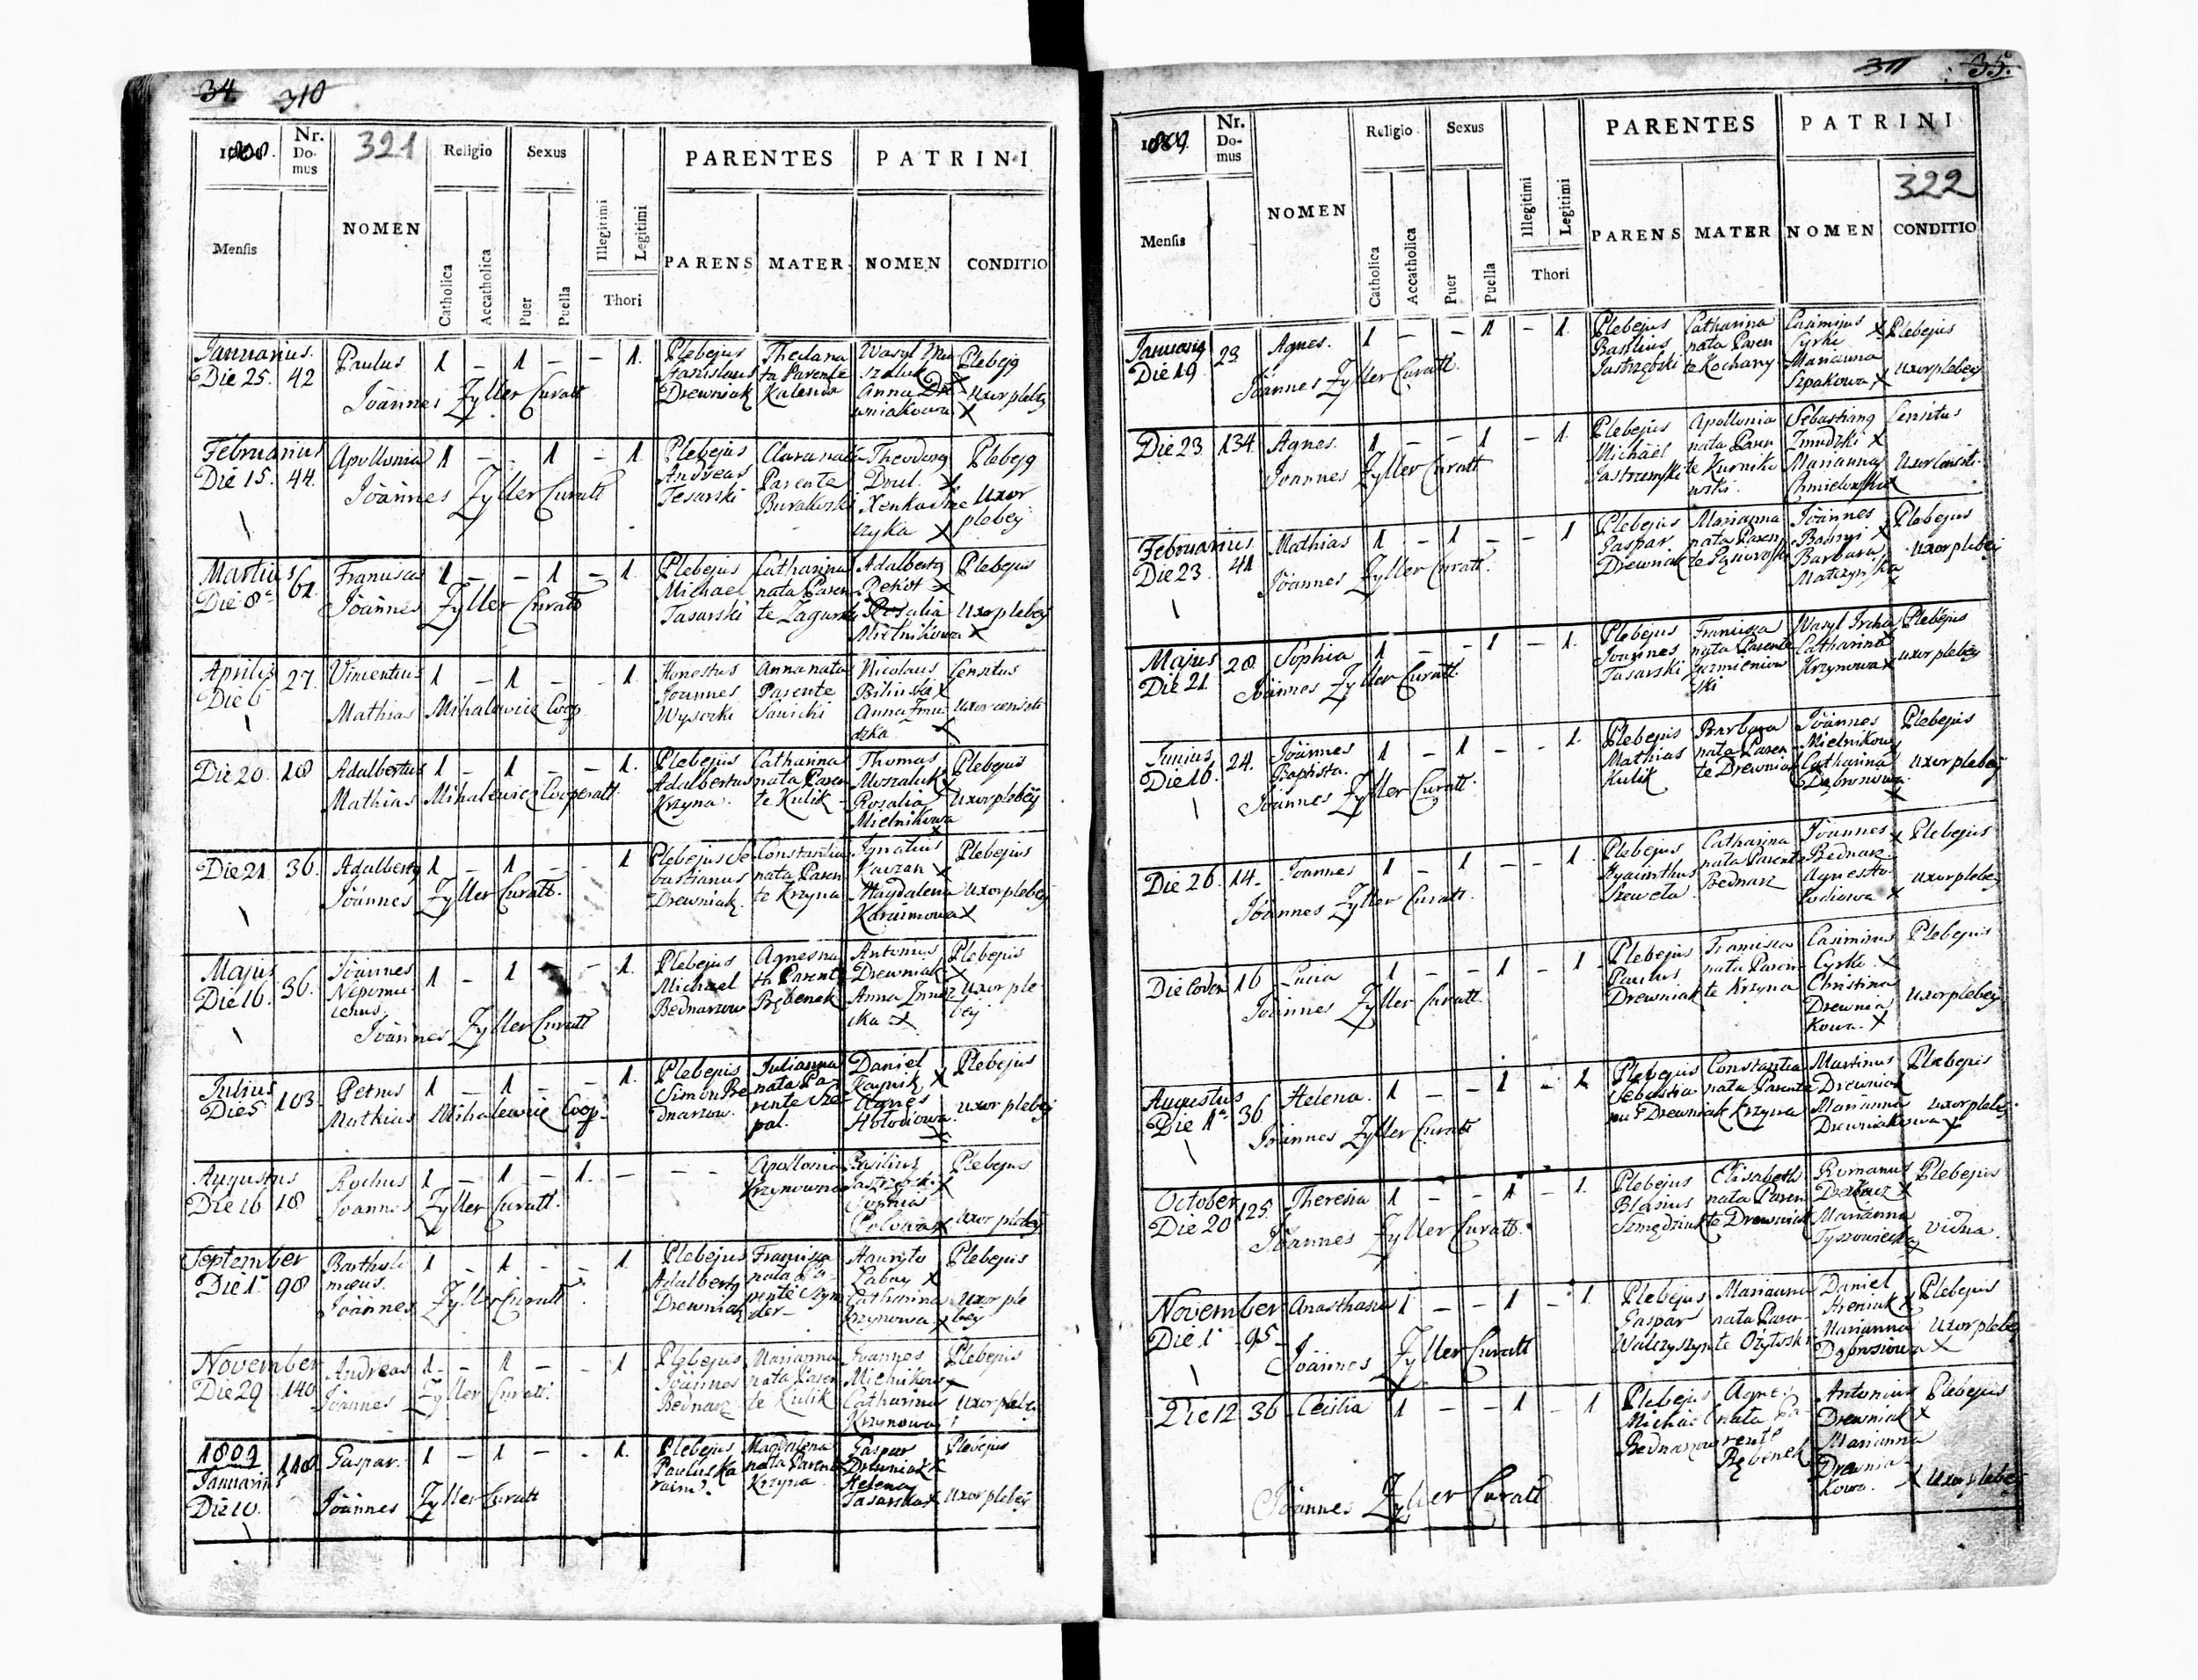 34. 310
1808.
Nr. Domus
321
Religio
Sexus
PARENTES
PATRINI
Mensis
NOMEN
Catholica
Accatholica
Puer
Puella
Illegitimi
Legitimi
Thori
PARENS
MATER
NOMEN
CONDITIO
Januarius. Die 25. 42 Paulus 1 - 1 - - 1.
Plebejus Stanislaus Drewniak
Anna Drewniakowa X
Uxor plebej
Joannes Zyller Curatt
Februarius Die 15. 44. Apollonia 1 - - 1 - 1
Plebejus Andreas Tesarski
Clara nata Parente Burakowski
Plebejg
Uxor plebej
Joannes Zyller Curatt
Martius Die 8a 62. 1 - - 1 - 1.
Plebejus Michael Tasarski
Catharina nata Parente
Adalbertg X
Plebejus
Rosalia Mielnikowa X
Uxor plebej
Joannes Zyller Curatt
Aprilis Die 6 27. Vincentius 1 - 1 - - 1.
Honestus Joannes Wysocki
Anna nata Parente Sawicki
Nicolaus Bilinski X
Censitus
Anna Zmudzka X
Uxor censiti
Mathias Mihalewicz Coop
Die 20. 18 Adalbertus 1 - 1 - - 1.
Plebejus Adalbertus Krzyna
Catharina nata Parente Kulik
Thomas X
Plebejus
Rosalia Mielnikowa X
Uxor plebej
Mathias Mihalewicz Cooperatt.
Die 21. 36. Adalbertg 1 - 1 - - 1
Plebejus Sebastianus Drewniak
Constantia nata Parente Krzyna
Ignatius X
Plebejus
Magdalena Karaimowa X
Uxor plebej
Joannes Zyller Curatt.
Majus Die 16. 36. Joannes Nepomucenus 1 - 1 - - 1.
Plebejus Michael Bednarzow
Agnes nata Parente Rębenek
Antonius Drewniak X
Plebejus
Anna X
Uxor plebej
Joannes Zyller Curatt
Julius Die 5 103 Petrus 1 - 1 - - 1.
Plebejus Simon Bednarzow.
Julianna nata Parente
Daniel X
Plebejus
Agnes Hołodiowa X
Uxor plebej
Mathias Mihalewicz Coop.
Augustus Die 16 18. Rochus 1 - 1 - 1. -
- -
Apollonia Krzynowna
Basilius Jastrzębski X
Plebejus
Sophia X
Uxor plebej
Joannes Zyller Curatt.
September Die 1a 98 Bartholomæus. 1 - 1 - - 1
Plebejus Adalbertg Drewniak
Francisca nata Parente
X
Plebejus
Catharina Krzynowa X
Uxor plebej
Joannes Zyller Curatt
November Die 29 140 Andreas 1 - 1 - - 1
Plebejus Joannes Bednarz
Marianna nata Parente Kulik
Joannes X
Plebejus
Catharina Krzynowa
Uxor plebej
Joannes Zyller Curatt.
1809 Januarius Die 10. 148 Gaspar. 1 - 1 - - 1.
Plebejus Paulus Karaim.
Magdalena nata Parente Krzyna
Gaspar Drewniak X
Plebejus
Helena Tasarska X
Uxor plebej
Joannes Zyller Curatt
311 35.
1809.
Nr. Domus
Religio
Sexus
PARENTES
PATRINI
322
Mensis
NOMEN
Catholica
Accatholica
Puer
Puella
Illegitimi
Legitimi
Thori
PARENS
MATER
NOMEN
CONDITIO
Januarig Die 19 23 Agnes. 1 - - 1 - 1.
Plebejus Basilius Jastrzębski
Catharina nata Parente Kochany
Casimirus Cyrki X
Plebejus
Marianna Szpakowa X
Uxor plebej
Joannes Zyller Curatt.
Die 23 134. Agnes. 1 - - 1 - 1.
Plebejus Michael
Apollonia nata Parente
Sebastiang Zmudzki X
Censitus
Marianna Chmielewska
Uxor Censiti
Joannes Zyller Curatt
Februarius Die 23 41 Mathias 1 - 1 - - 1
Plebejus Gaspar Drewniak
Marianna nata Parente
Joannes X
Plebejus
Barbara Matczyńska X
Uxor plebej
Joannes Zyller Curatt.
Majus Die 21. 28. Sophia 1 - - 1 - 1.
Plebejus Joannes Tasarski
Francisca nata Parente
Wasyl Ircha X
Plebejus
Catharina Krzynowa X
Uxor plebej
Joannes Zyller Curatt.
Junius Die 16. 24. Joannes Baptista. 1 - 1 - - 1.
Plebejus Mathias Kulik
Barbara nata Parente Drewniak
Joannes Mielnikow X
Plebejus
Catharina X
Uxor plebej
Joannes Zyller Curatt.
Die 26. 14. Joannes 1 - 1 - - 1
Plebejus Hyacinthus Szeweła
Catharina nata Parente Bednarz
Joannes Bednarz X
Plebejus
Agnes X
Uxor plebej
Joannes Zyller Curatt.
Die Eodem 16 Lucia 1 - - 1 - 1
Plebejus Paulus Drewniak
Francisca nata Parente Krzyna
Casimirus Cyrki X
Plebejus
Christina Drewniakowa. X
Uxor plebej
Joannes Zyller Curatt.
Augustus Die 1a 36 Helena. 1 - - 1 - 1
Plebejus Sebastianus Drewniak
Constantia nata Parente Krzyna
Martinus Drewniak
Plebejus
Marianna Drewniakowa X
Uxor plebej
Joannes Zyller Curatt
October Die 20 125. Theresia 1 - - 1 - 1.
Plebejus Blasius
Elisabeth nata Parente Drewniak
Romanus X
Plebejus
Marianna Tyszowiecka
vidua.
Joannes Zyller Curatt.
November Die 1a 95 Anasthasia 1 - - 1 - 1
Plebejus Gaspar Walczyszyn
Marianna nata Parente
Daniel X
Plebejus
Marianna X
Uxor plebej
Joannes Zyller Curatt
Die 12 36 Cecilia 1 - - 1 - 1
Plebejus Michael Bednarzow
Agnes nata Parente Rębenek
Antonius Drewniak X
Plebejus
Marianna Drewniakowa. X
Uxor plebej
Joannes Zyller Curatt